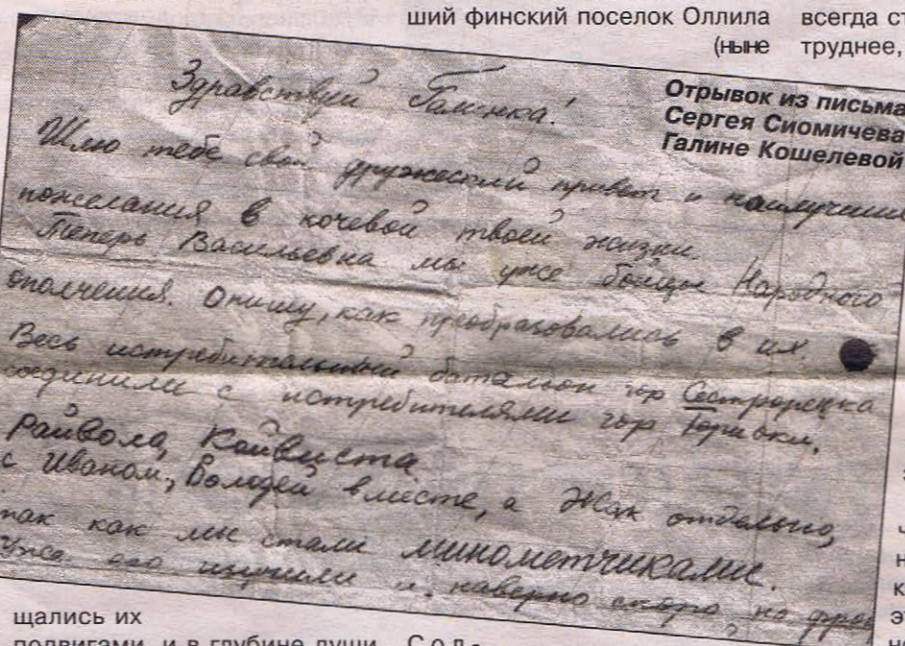 ший финский поселок Оллила
(ныне
всегда ст
труднее,
Отрывок из письма
Сергея Сиомичева
Галине Кошелевой
Здравствуй Галинка!
Шлю тебе свой дружеский привет и наилучшие
пожелания в кочевой твоей жизни.
Теперь Васильевна мы уже бойцы Народного
ополчения. Опишу, как преобразовались в их.
Весь истребительный батальон гор Сестрорецка
соединили с истребителями гор Териоки,
Райвола, Койвиста
с Иваном, Володей вместе, а Жак отдельно,
так как мы стали минометчиками.
Уже его изучили и наверно скоро на фрон
щались их
подвигами, и в глубине души
Сол-
ч
н
к
э